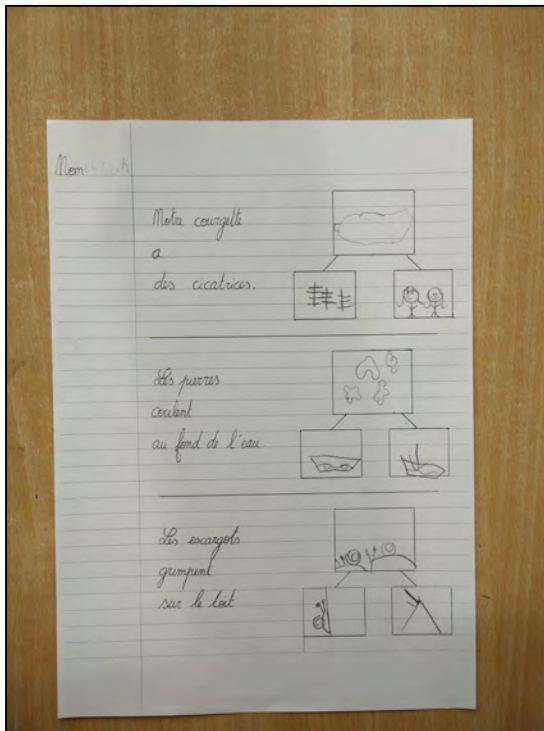 Nom
Notre courgette
a
des cicatrices.
Les pierres
coulent
au fond de l'eau.
Les escargots
grimpent
sur le toit